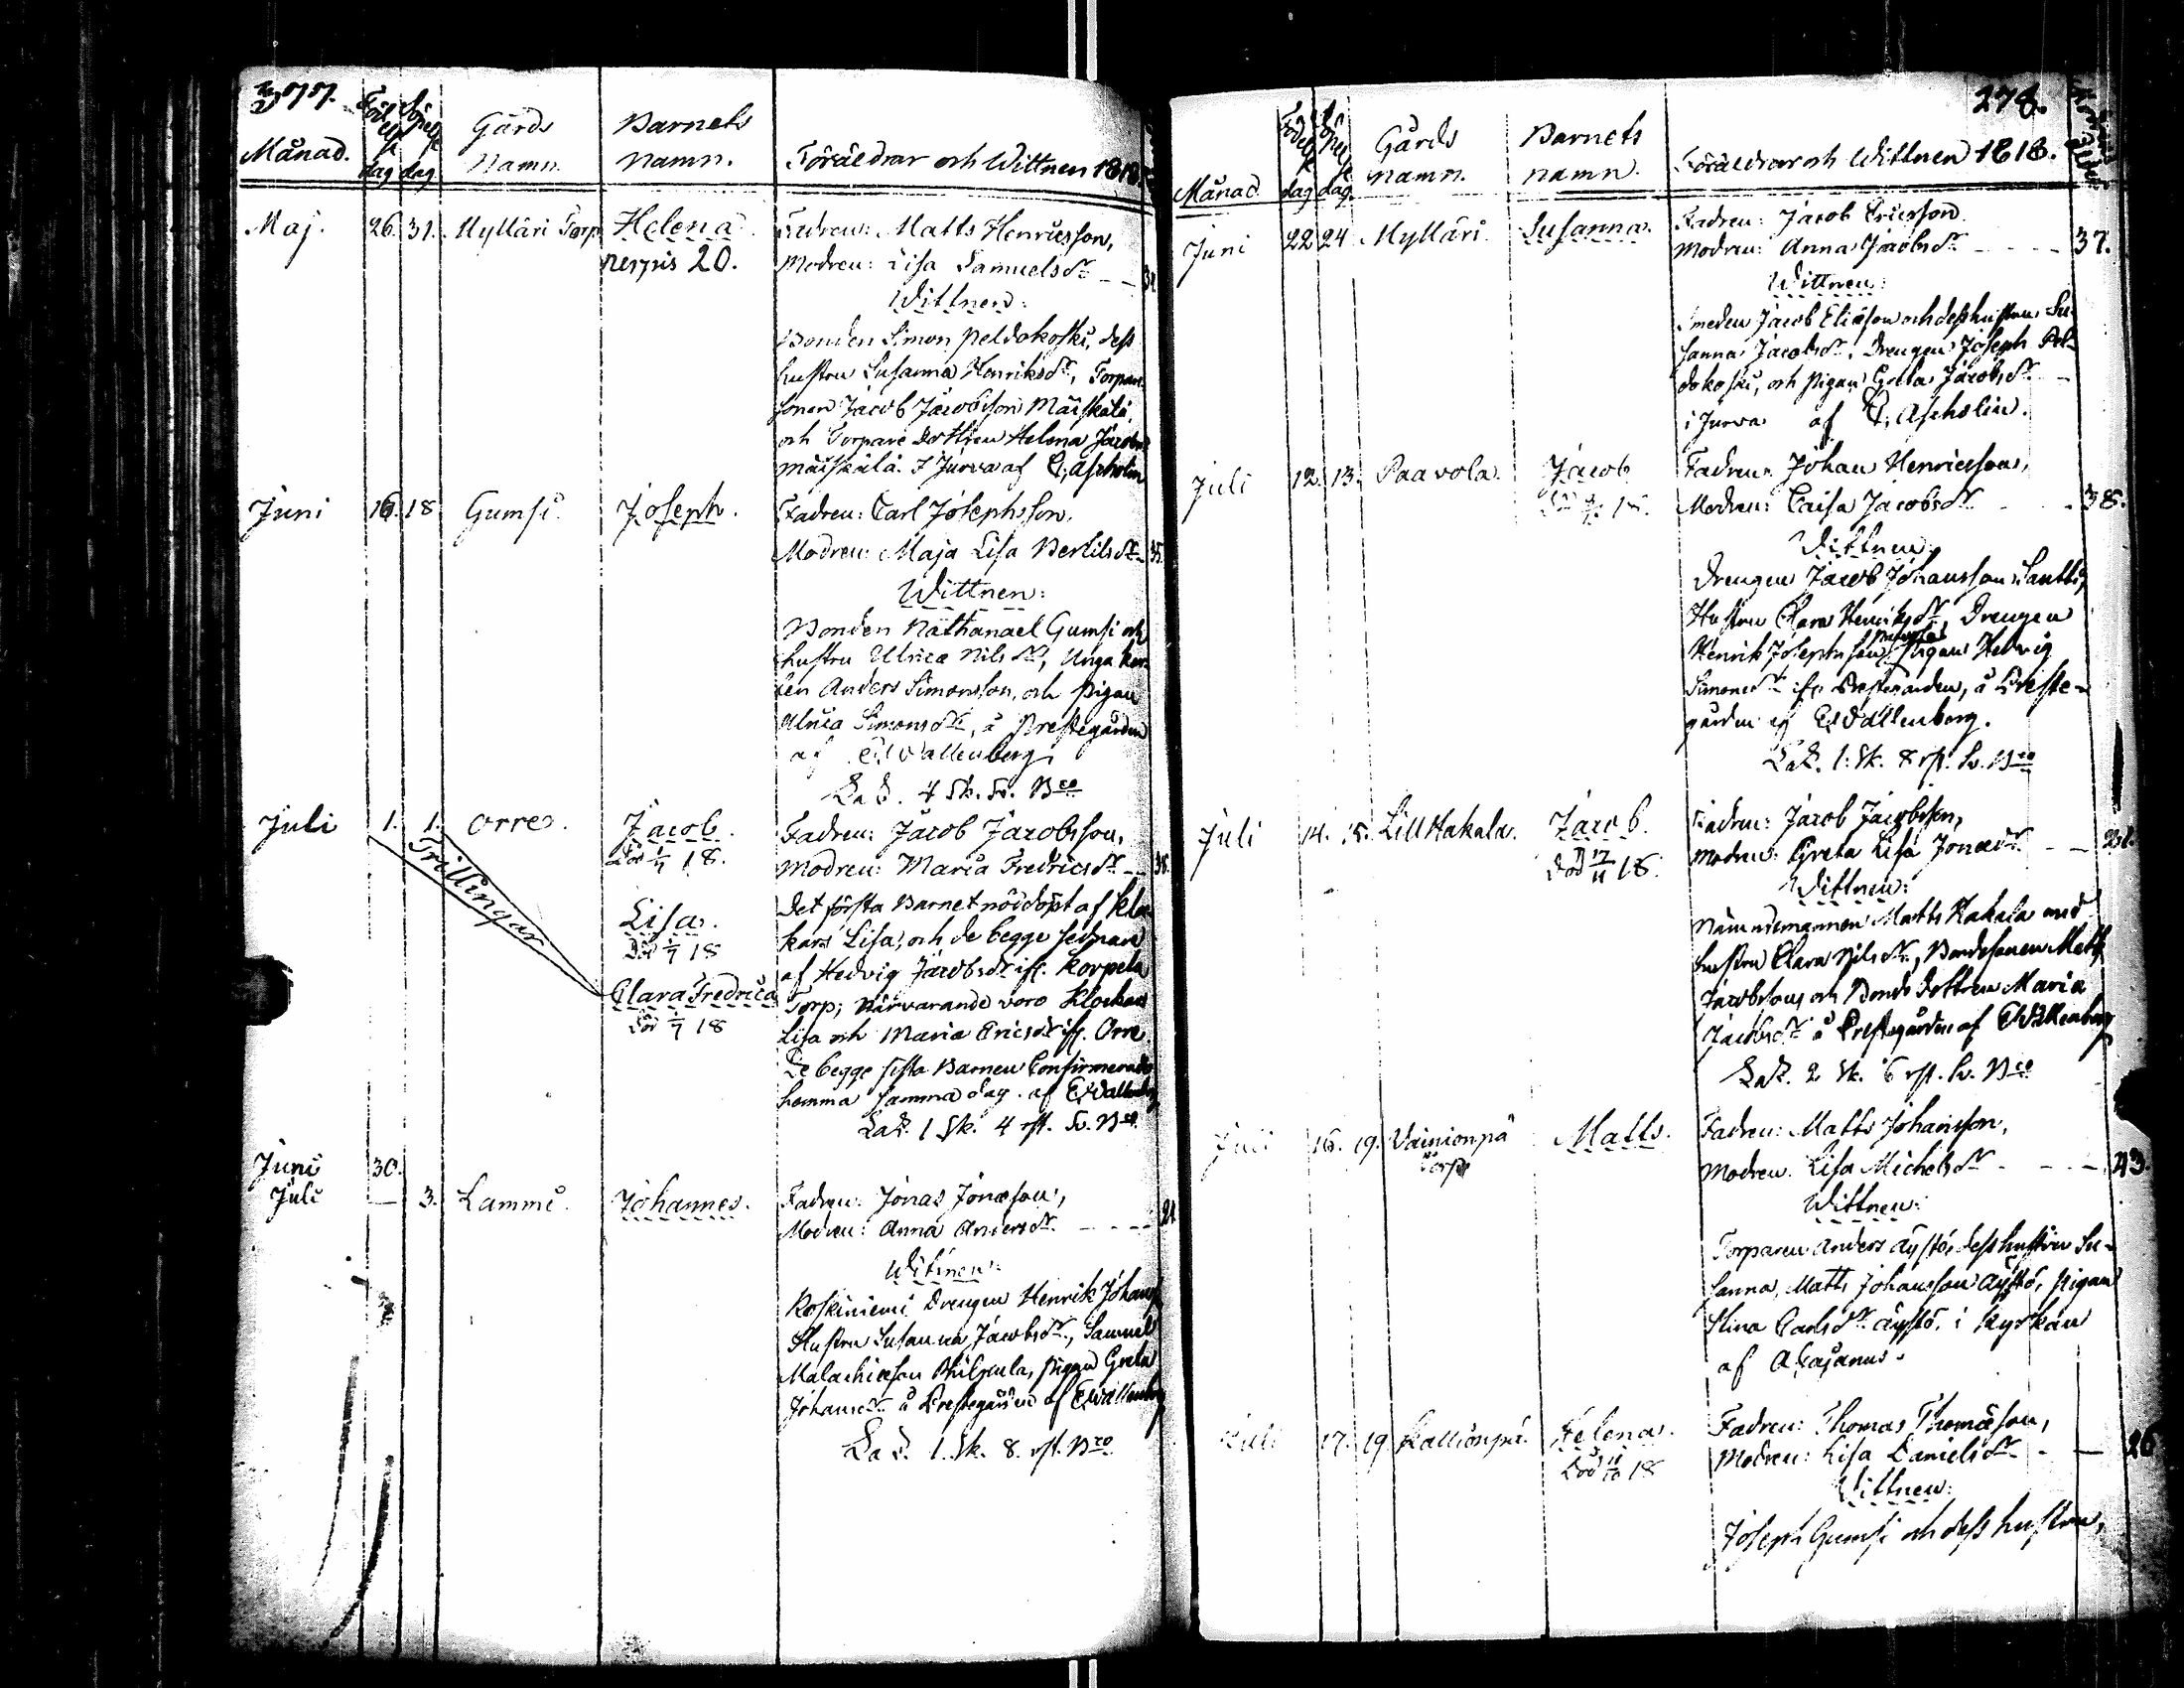 277.
Månad.
Födelse dag
Döpelse dag
Gårds Namn.
Barnets Namn.
Föräldrar och Wittnen 1818.
Maj. 26. 31. Mylläri Torp Helena. Fadren: Matts Henricsson,
Modren: Lisa Samuelsdr
Wittnen:
Bonden Simon Peldokoski, dess
hustru Susanna Henriksdr, Torpare
sonen Jacob Jacobsson Mäiskälä,
och Torpare dottren Helena Jacobsdr
Mäiskälä. I Jurva af C. Ascholin
Juni 16. 18 Gumsi. Joseph. Fadren: Carl Josephsson,
Modren: Maja Lisa Bertilsdr 35.
Wittnen:
Bonden Nathanael Gumsi och
hustru Ulrica Nilsdr, Unga
Anders Simonsson, och Pigan
Ulrica Simonsdr, å Prestegården
af E. Wallenberg.
4 Sk. Sv. Bco
Juli 1. 1. Orres. Jacob. Fadren: Jacob Jacobsson,
Död 1/7 18. Modren: Maria Fredricsdr
Trillingar
Lisa. Det första Barnet nöddöpt af Kloc
Död 1/7 18 kars Lisa, och de begge sednare
af Hedvig Jacobsdr ifr. Korpela
Clara Fredrica Torp; närvarande voro Klockars
Död 1/7 18 Lisa och Maria Ericsdr ifr. Orre.
De begge sista Barnen Confirmerades
hemma samma dag af E. Wallenberg
1 Sk. 4 rst. Sv. Bco
Juni 30.
Juli — 3. Lammi. Johannes. Fadren: Jonas Jonasson,
Modren: Anna Andersdr.
Wittnen:
Koskiniemi Drengen Henrik Johans
Hustru Susanna Jacobsdr, Samuel
Malachiasson, Pigan Greta
Johansdr å Prestegården af E. Wallenberg
1. Sk. 8. rst. Bco
278.
Månad
Födelse dag
Döpelse dag.
Gårds namn.
Barnets namn.
Föräldrar och Wittnen 1818.
Modrens Ålder
Juni 22 24 Mylläri. Susanna. Fadren: Jacob Ericsson.
Modren: Anna Jacobsdr 37.
Wittnen:
Smeden Jacob Eliasson och dess hustru Su
sanna Jacobsdr. Drengen Joseph Pel-
dokoski, och Pigan Greta Jacobsdr
i Jurva af C. Ascholin.
Juli 12. 13. Paavola. Jacob Fadren: Johan Henricsson,
Modren: Caisa Jacobsdr 38.
Wittnen:
Drengen Jacob Johansson Santti,
Hustru Clara Henriksdr, Drengen
Henrik Josephsson, Pigan Hedvig
Simonsdr ifr. Prestgården, å Preste-
gården af E. Wallenberg.
1. Sk. 8 rst. Sv. Bco
Juli 14. 15. Lill Hakala. Jacob. Fadren: Jacob Jacobsson,
Död 17/11 18. Modren: Greta Lisa Jonaedr
Wittnen:
Nämndemannen Matts Hakala med
hustru Clara Nilsdr, Bondesonen Matts
Jacobsson och Bonde dottren Maria
Jacobsdr å Prestegården af E. Wallenberg
2 Sk. 6 rst. Sv. Bco
Juli 16. 19. Vainionpä Torp Matts. Fadren: Matts Johansson,
Modren: Lisa Michelsdr 43.
Wittnen:
Torparen Anders Äystö, dess hustru Su-
sanna, Matts Johansson Äystö, Pigan
Stina Carlsdr Äystö. i Kyrkan
af A. Cajanus.
Juli 17. 19. Kallionpä. Helena. Fadren: Thomas Thomasson,
Död 11/10 18 Modren: Lisa Danielsdr 26
Wittnen:
Joseph Gumsi och dess hustru,